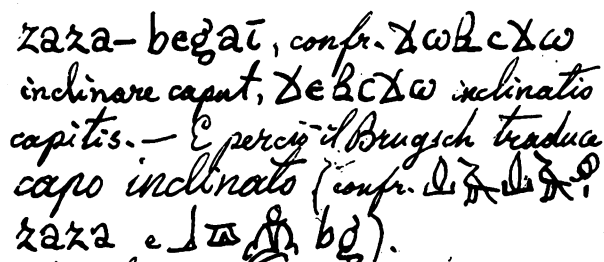 zaza-begaī, confr. ϫⲱⲃⲥϫⲱ
inclinare caput, ϫⲉⲃⲥϫⲱ inclinatio
capitis. — E perciò il Brugsch traduce
capo inclinato (confr.
zaza e bg).